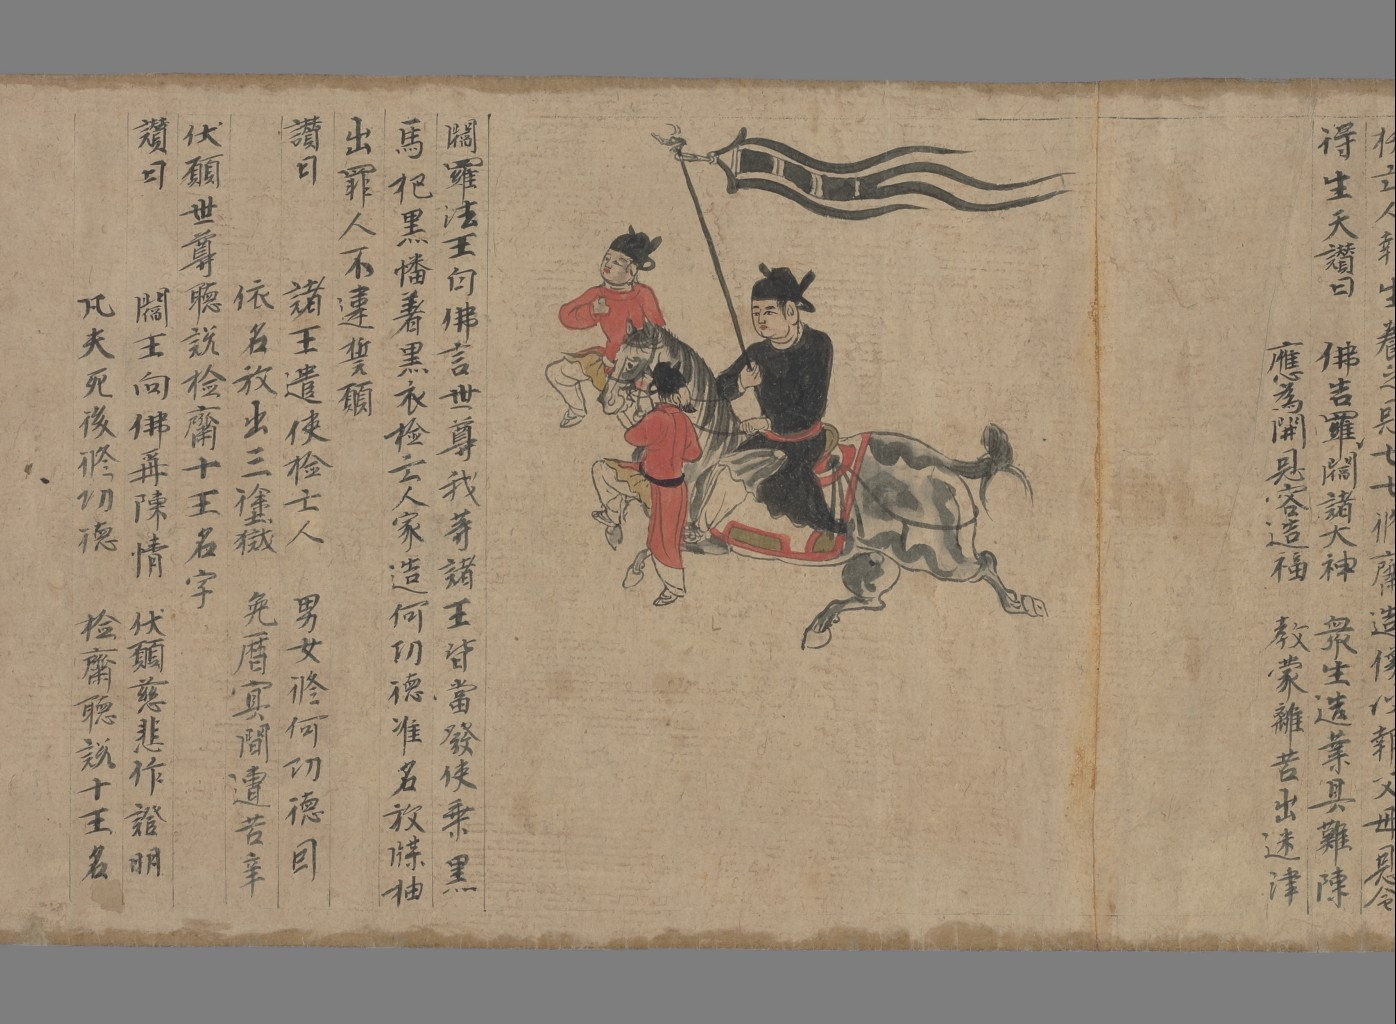 得生天讚曰　佛告羅閻諸大神　衆生造業具難陳
應為開恩容造福　教蒙離苦出迷津
閻羅法王白佛言世尊我等諸王皆當發使乘黑
馬把黑幡著黑衣檢亡人家造何功德准名放牒抽
出罪人不違誓願
讚曰　諸王遣使檢亡人　男女修何功德因
依名放出三塗獄　免曆冥間遭苦辛
伏願世尊聽説檢齋十王名字
讚曰　閻王向佛再陳情　伏願慈悲作證明
凡夫死後修功德　檢齋聽説十王名